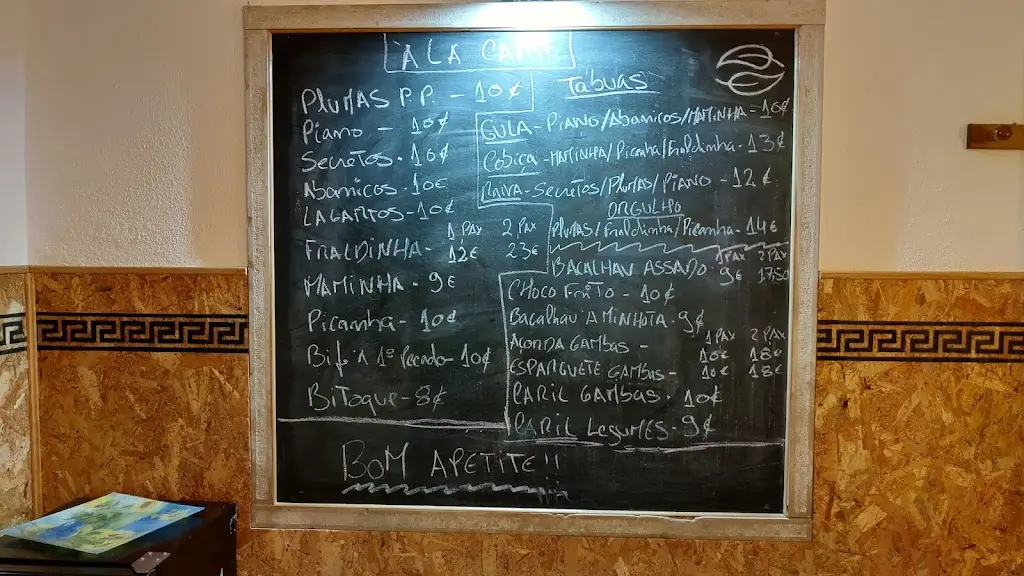 À LA CARTE
PlUMAS P.P. - 10€
Piano - 10€
Secretos - 10€
Abanicos - 10€
LAGARTOS - 10€
1 PAX 2 PAX
FRALDINHA - 12€ 23€
MAMINHA - 9€
Picanha - 10€
Bife À 1º Pecado - 10€
BiToque - 8€
Tábuas
GULA - PiANO/Abanicos/MAMINHA - 10€
Cobiça - MAMINHA/Picanha/Fraldinha - 13€
RAIVA - Secretos/Plumas/PiANO - 12€
ORGULHO
PlUMAS/Fraldinha/Picanha - 14€
1PAX 2PAX
BACALHAU ASSADO 9€ 17,50
CHOCO FRITO - 10€
Bacalhau À MINHOTA - 9€
1 PAX 2 PAX
AÇORDA GAMBAS - 10€ 18€
ESPARGUETE GAMBAS - 10€ 18€
CARIL GAMBAS - 10€
CARIL LegUMES - 9€
BOM APETITE!!